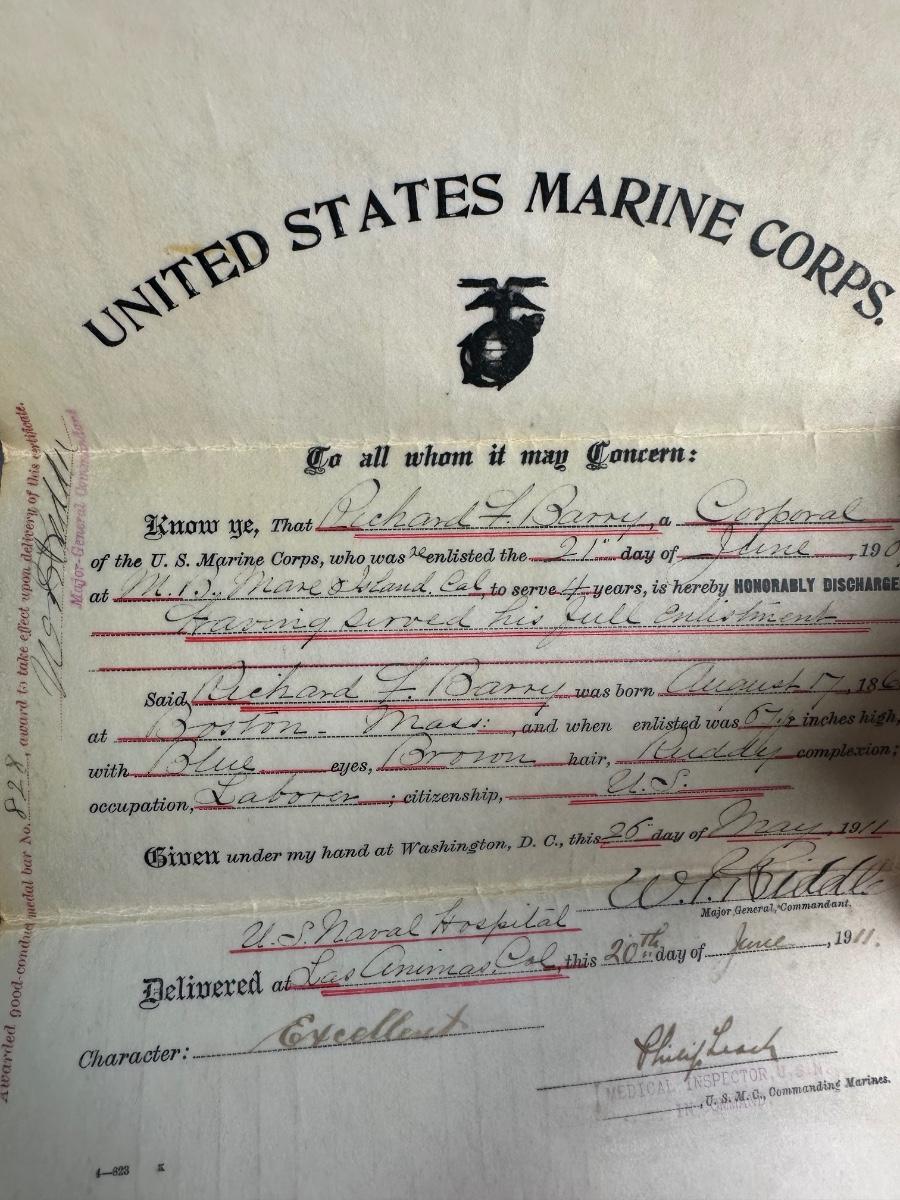 UNITED STATES MARINE CORPS.
To all whom it may Concern:
Know ye, That Richard F. Barry, a Corporal
of the U. S. Marine Corps, who was reenlisted the 21st day of June, 190
at M. B., Mare Island, Cal., to serve 4 years, is hereby HONORABLY DISCHARGE
Having served his full enlistment
Said Richard F. Barry was born August 17, 186
at Boston - Mass:, and when enlisted was 67 1/2 inches high,
with Blue eyes, Brown hair, Ruddy complexion;
occupation, Laborer; citizenship, U.S.
Given under my hand at Washington, D. C., this 26" day of May, 1911
W. P. Biddle
Major General, Commandant.
U.S. Naval Hospital
Delivered at Las Animas, Col., this 20th day of June, 1911.
Character: Excellent
Philip Leach
MEDICAL INSPECTOR, U.S.N.
IN COMMAND.
, U. S. M. C., Commanding Marines.
4—623 K
Awarded good-conduct medal bar No. 828, award to take effect upon delivery of this certificate.
Major-General Commandant